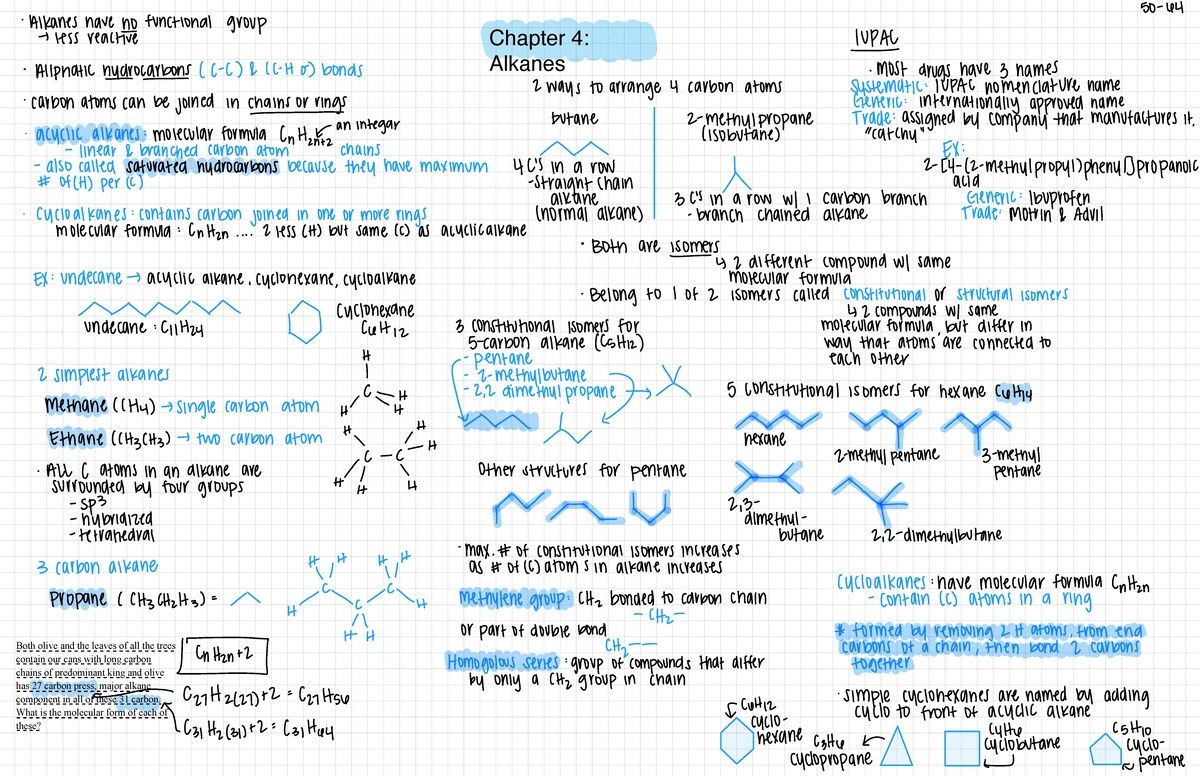 50-64
· Alkanes have no functional group
→ less reactive
· Aliphatic hydrocarbons (C-C) & (C-H σ) bonds
· carbon atoms can be joined in chains or rings
· acyclic alkanes: molecular formula CnH2n+2 ← an integar
- linear & branched carbon atom chains
- also called saturated hydrocarbons because they have maximum
# of (H) per (C)
· cycloalkanes: contains carbon joined in one or more rings
molecular formula: CnH2n .... 2 less (H) but same (C) as acyclicalkane
EX: undecane → acyclic alkane, cyclohexane, cycloalkane
undecane: C11H24
cyclohexane
C6H12
2 simplest alkanes
Methane (CH4) → single carbon atom
Ethane (CH3CH3) → two carbon atom
H
C
H
H
H
H
H
H
C - C - H
H
H
H
· All C atoms in an alkane are
surrounded by four groups
- sp3
- hybridized
- tetrahedral
3 carbon alkane
Propane (CH3CH2H3) =
H H H H
C C
H C H
H H
Both olive and the leaves of all the trees
contain our cans with long carbon
chains of predominant king and olive
has 27 carbon press, major alkane
component in all of these 31 carbon.
What is the molecular form of each of
these?
CnH2n+2
C27H2(27)+2 = C27H56
C31H2(31)+2 = C31H64
Chapter 4:
Alkanes
2 ways to arrange 4 carbon atoms
butane
4 C's in a row
- straight chain
alkane
(normal alkane)
2-methylpropane
(isobutane)
3 C's in a row w/ 1 carbon branch
- branch chained alkane
· Both are isomers
↳ 2 different compound w/ same
molecular formula
· Belong to 1 of 2 isomers called constitutional or structural isomers
↳ 2 compounds w/ same
molecular formula, but differ in
way that atoms are connected to
each other
3 constitutional isomers for
5-carbon alkane (C5H12)
- pentane
- 2-methylbutane
- 2,2 dimethyl propane
Other structures for pentane
· max. # of constitutional isomers increases
as # of (C) atom s in alkane increases
Methylene group: CH2 bonded to carbon chain
- CH2 -
or part of double bond
CH2 = 
Homologous series: group of compounds that differ
by only a CH2 group in chain
IUPAC
· Most drugs have 3 names
Systematic: IUPAC nomenclature name
Generic: internationally approved name
Trade: assigned by company that manufactures it,
"catchy"
EX:
2-[4-(2-methylpropyl)phenyl]propanoic
acid
Generic: Ibuprofen
Trade: Motrin & Advil
5 constitutional isomers for hexane C6H14
hexane
2-methyl pentane
3-methyl
pentane
2,3-
dimethyl-
butane
2,2-dimethylbutane
Cycloalkanes: have molecular formula CnH2n
- contain (C) atoms in a ring
* formed by removing 2 H atoms, from end
carbons of a chain, then bond 2 carbons
together
· simple cyclohexanes are named by adding
cyclo to front of acyclic alkane
C6H12
cyclo-
hexane
C3H6
cyclopropane
C4H8
cyclobutane
C5H10
cyclo-
pentane